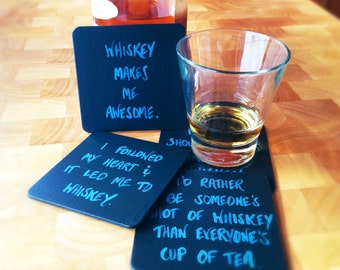 WHISKEY
MAKES
ME
AWESOME.
SHO
I FOLLOWED
MY HEART &
IT LED ME TO
WHISKEY.
I'D RATHER
BE SOMEONE'S
SHOT OF WHISKEY
THAN EVERYONE'S
CUP OF TEA